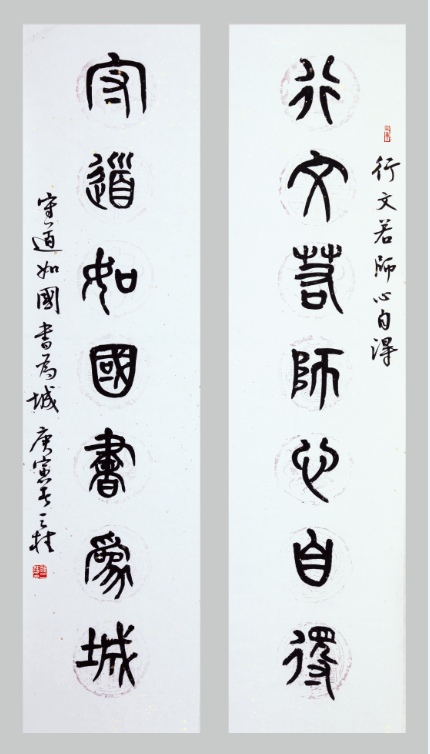 行文若師心自得
行文若師心自得
守道如國書爲城
守道如國書為城 庚寅